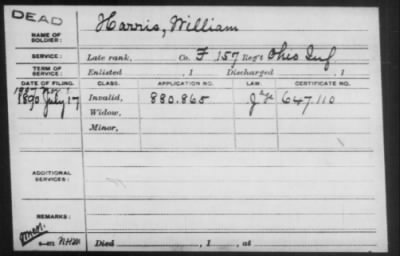 DEAD
NAME OF SOLDIER: Harris, William
SERVICE: Late rank, Co. F 157 Reg't Ohio Inf
TERM OF SERVICE: Enlisted , 1 Discharged , 1
DATE OF FILING. CLASS. APPLICATION NO. LAW. CERTIFICATE NO.
1890 July 17 Invalid, 880.865 647.110
Widow,
Minor,
ADDITIONAL SERVICES:
REMARKS:
Died , 1 , at